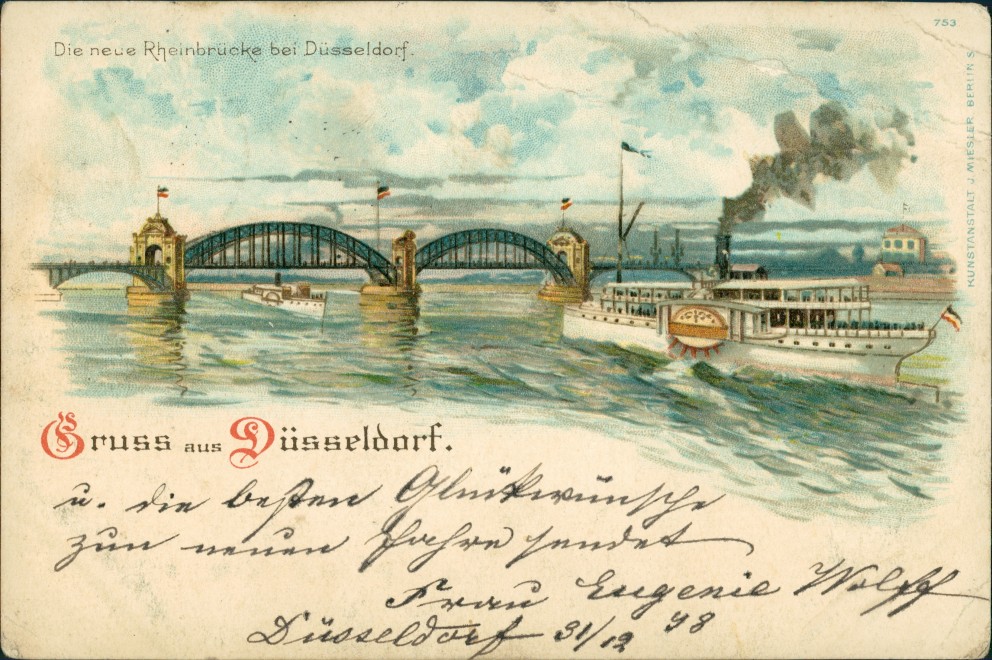 753
Die neue Rheinbrücke bei Düsseldorf.
KUNSTANSTALT J. MIESLER BERLIN S.
Gruss aus Düsseldorf.
u. die besten Glückwünsche
zum neuen Jahre sendet
Frau Eugenie Wolff
Düsseldorf 31/12 98